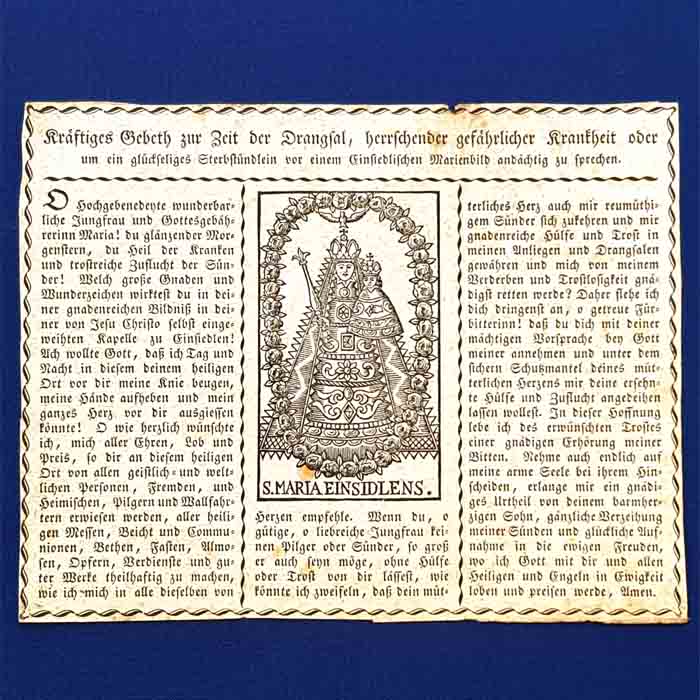 Kräftiges Gebeth zur Zeit der Drangsal, herrschender gefährlicher Krankheit oder
um ein glückseliges Sterbstündlein vor einem Einsiedlischen Marienbild andächtig zu sprechen.
O Hochgebenedeyte wunderbar-
liche Jungfrau und Gottesgebäh-
rerinn Maria! du glänzender Mor-
genstern, du Heil der Kranken
und trostreiche Zuflucht der Sün-
der! Welch große Gnaden und
Wunderzeichen wirktest du in dei-
ner gnadenreichen Bildniß in dei-
ner von Jesu Christo selbst einge-
weihten Kapelle zu Einsiedlen!
Ach wollte Gott, daß ich Tag und
Nacht in diesem deinem heiligen
Ort vor dir meine Knie beugen,
meine Hände aufheben und mein
ganzes Herz vor dir ausgiessen
könnte! O wie herzlich wünschte
ich, mich aller Ehren, Lob und
Preis, so dir an diesem heiligen
Ort von allen geistlich- und welt-
lichen Personen, Fremden, und
Heimischen, Pilgern und Wallfahr-
tern erwiesen werden, aller heili-
gen Messen, Beicht und Commu-
nionen, Bethen, Fasten, Almo-
sen, Opfern, Verdienste und gu-
ter Werke theilhaftig zu machen,
wie ich mich in alle dieselben von
S. MARIA EINSIDLENS.
Herzen empfehle. Wenn du, o
gütige, o liebreiche Jungfrau kei-
nen Pilger oder Sünder, so groß
er auch seyn möge, ohne Hülfe
oder Trost von dir lässest, wie
könnte ich zweifeln, daß dein müt-
terliches Herz auch mir reumüthi-
gem Sünder sich zukehren und mir
gnadenreiche Hülfe und Trost in
meinen Anliegen und Drangsalen
gewähren und mich von meinem
Verderben und Trostlosigkeit gnä-
digst retten werde? Daher flehe ich
dich dringenst an, o getreue Für-
bitterinn! daß du dich mit deiner
mächtigen Vorsprache bey Gott
meiner annehmen und unter dem
sichern Schutzmantel deines müt-
terlichen Herzens mir deine ersehn-
te Hülfe und Zuflucht angedeihen
lassen wollest. In dieser Hoffnung
lebe ich des erwünschten Trostes
einer gnädigen Erhörung meiner
Bitten. Nehme auch endlich auf
meine arme Seele bei ihrem Hin-
scheiden, erlange mir ein gnädi-
ges Urtheil von deinem barmher-
zigen Sohn, gänzliche Verzeihung
meiner Sünden und glückliche Auf-
nahme in die ewigen Freuden,
wo ich Gott mit dir und allen
Heiligen und Engeln in Ewigkeit
loben und preisen werde, Amen.